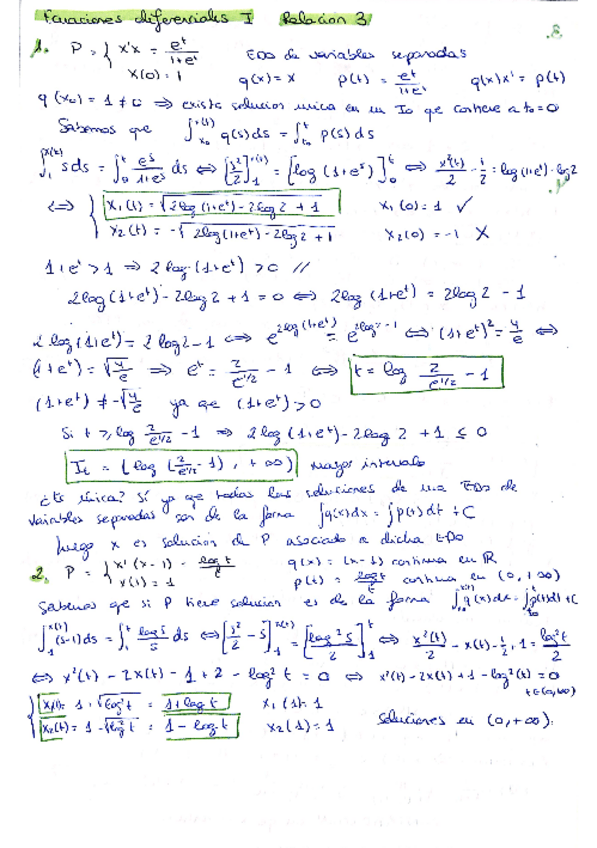 Ecuaciones diferenciales I Relación 3
1. P = { x'x = e^t/(1+e^t) EDO de variables separadas
x(0) = 1 q(x) = x p(t) = e^t/(1+e^t) q(x)x' = p(t)
q(x_0) = 1 ≠ 0 ⇒ existe solucion unica en un I_0 que contiene a t_0 = 0
Sabemos que ∫_{x_0}^{x(t)} q(s)ds = ∫_{t_0}^t p(s)ds
∫_1^{x(t)} s ds = ∫_0^t e^s/(1+e^s) ds ⇔ [s²/2]_1^{x(t)} = [log(1+e^s)]_0^t ⇔ x²(t)/2 - 1/2 = log(1+e^t) - log 2
⇔ { x_1(t) = √(2log(1+e^t) - 2log2 + 1) x_1(0) = 1 ✓
x_2(t) = -√(2log(1+e^t) - 2log2 + 1) x_2(0) = -1 X
1+e^t > 1 ⇒ 2log(1+e^t) > 0 //
2log(1+e^t) - 2log2 + 1 = 0 ⇔ 2log(1+e^t) = 2log2 - 1
2log(1+e^t) = 2log2 - 1 ⇔ e^{2log(1+e^t)} = e^{2log2 - 1} ⇔ (1+e^t)² = 4/e ⇔
(1+e^t) = √(4/e) ⇒ e^t = 2/e^{1/2} - 1 ⇔ t = log 2/e^{1/2} - 1
(1+e^t) ≠ -√(4/e) ya que (1+e^t) > 0
Si t ≥ log 2/e^{1/2} - 1 ⇒ 2log(1+e^t) - 2log2 + 1 ≤ 0
I_t = (log(2/e^{1/2} - 1), +∞) mayor intervalo
¿Es única? Sí ya que todas las soluciones de una EDO de
variables separadas son de la forma ∫q(x)dx = ∫p(t)dt + C
luego x es solucion de P asociado a dicha EDO
2. P = { x'(x-1) = log t/t q(x) = (x-1) continua en ℝ
x(1) = 1 p(t) = log t/t continua en (0, +∞)
Sabemos que si P tiene solucion es de la forma ∫_{x_0}^{x(t)} q(x)dx = ∫_{t_0}^t p(t)dt + C
∫_1^{x(t)} (s-1)ds = ∫_1^t log s/s ds ⇔ [s²/2 - s]_1^{x(t)} = [log² s/2]_1^t ⇔ x²(t)/2 - x(t) - 1/2 + 1 = log² t/2
⇔ x²(t) - 2x(t) - 1 + 2 - log² t = 0 ⇔ x²(t) - 2x(t) + 1 - log²(t) = 0
t ∈ (0, ∞)
{ x_1(t) = 1 + √(log² t) = 1 + log t x_1(1) = 1
x_2(t) = 1 - √(log² t) = 1 - log t x_2(1) = 1 soluciones en (0, +∞).